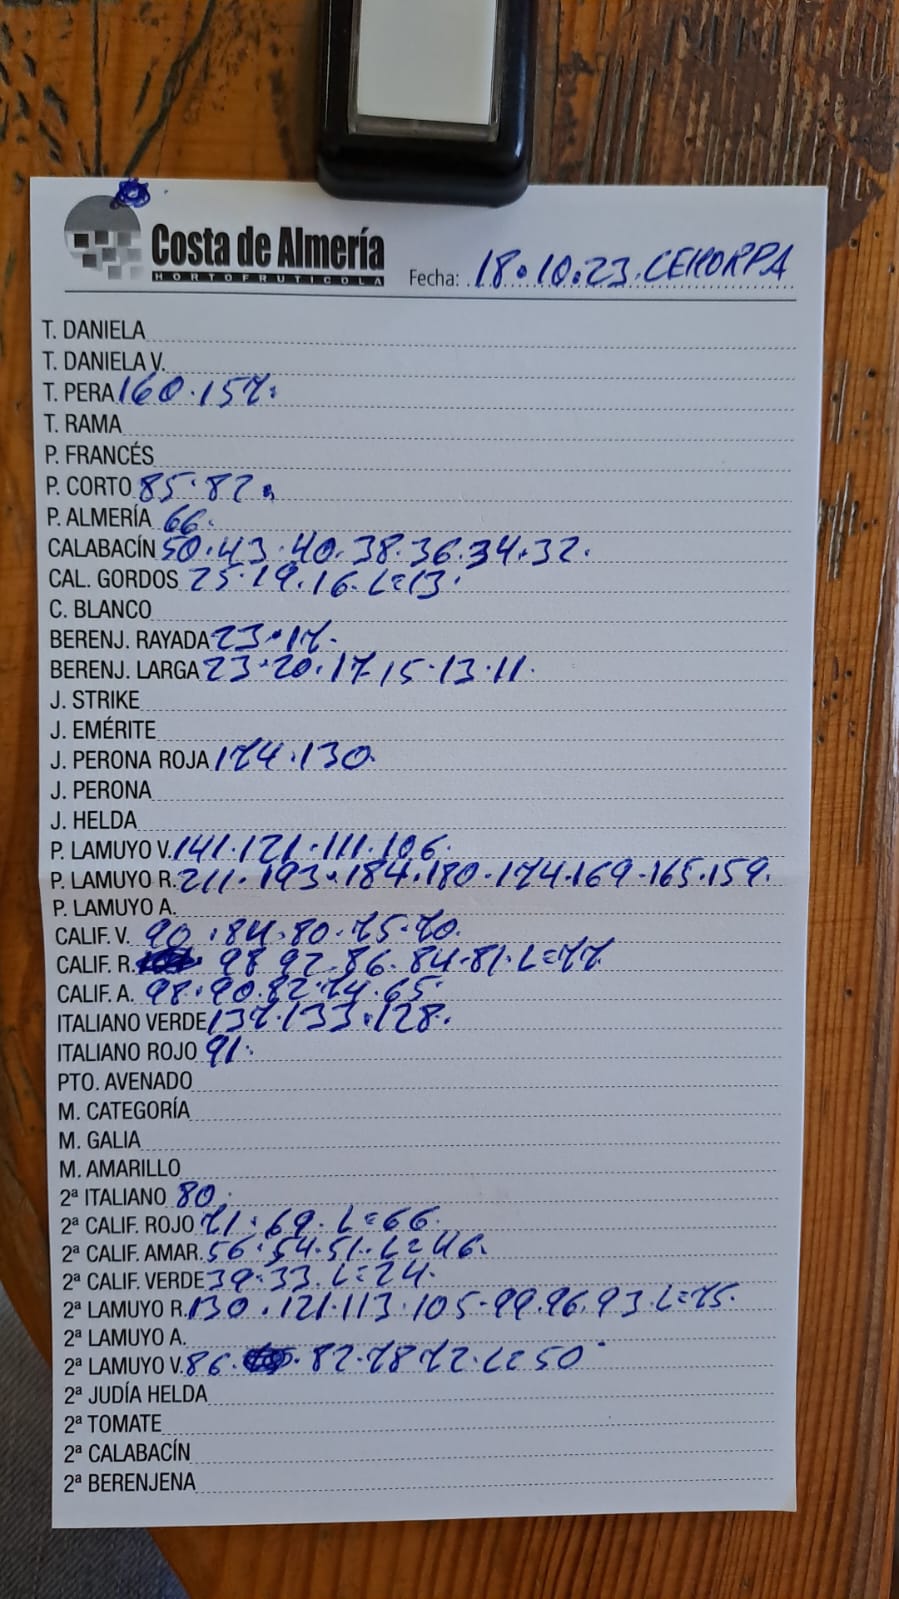 Costa de Almería
HORTOFRUTICOLA
Fecha: 18.10.23. CEHORPA
T. DANIELA
T. DANIELA V.
T. PERA 160.157.
T. RAMA
P. FRANCÉS
P. CORTO 85.82.
P. ALMERÍA 66.
CALABACÍN 50.43.40.38.36.34.32.
CAL. GORDOS 25.19.16.L=13.
C. BLANCO
BERENJ. RAYADA 23.17.
BERENJ. LARGA 23.20.17.15.13.11.
J. STRIKE
J. EMÉRITE
J. PERONA ROJA 174.130.
J. PERONA
J. HELDA
P. LAMUYO V. 141.121.111.106.
P. LAMUYO R. 211.193.184.180.174.169.165.159.
P. LAMUYO A.
CALIF. V. 90.84.80.75.70.
CALIF. R. 98.92.86.84.81.L=77.
CALIF. A. 98.90.82.74.65.
ITALIANO VERDE 137.133.128.
ITALIANO ROJO 91.
PTO. AVENADO
M. CATEGORÍA
M. GALIA
M. AMARILLO
2ª ITALIANO 80.
2ª CALIF. ROJO 71.69.L=66.
2ª CALIF. AMAR. 56.54.51.L=46.
2ª CALIF. VERDE 39.33.L=24.
2ª LAMUYO R. 130.121.113.105.99.96.93.L=75.
2ª LAMUYO A.
2ª LAMUYO V. 86.82.78.72.L=50
2ª JUDÍA HELDA
2ª TOMATE
2ª CALABACÍN
2ª BERENJENA